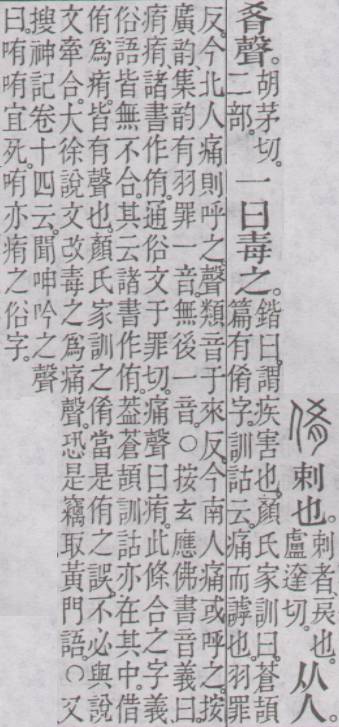 倄 剌也。剌者、戾也。盧達切。从人。
肴聲。胡茅切。二部。一曰毒之。鍇曰。謂疾害也。顏氏家訓曰。蒼頡篇有倄字。訓詁云。痛而謼也。羽罪
反。今北人痛則呼之。聲類音于來反。今南人痛或呼之。按
廣韵集韵有羽罪一音。無後一音。○按玄應佛書音義曰
痏痏。諸書作侑。通俗文于罪切。痛聲曰痏。此條合之字義
俗語皆無不合。其云諸書作侑。葢蒼頡訓詁亦在其中。借
侑爲痏。皆有聲也。顏氏家訓之倄當是侑之誤。不必與說
文牽合。大徐說文改毒之爲痛聲。恐是竊取黃門語。○又
搜神記卷十四云。聞呻吟之聲
曰。哊哊宜死。哊亦痏之俗字。